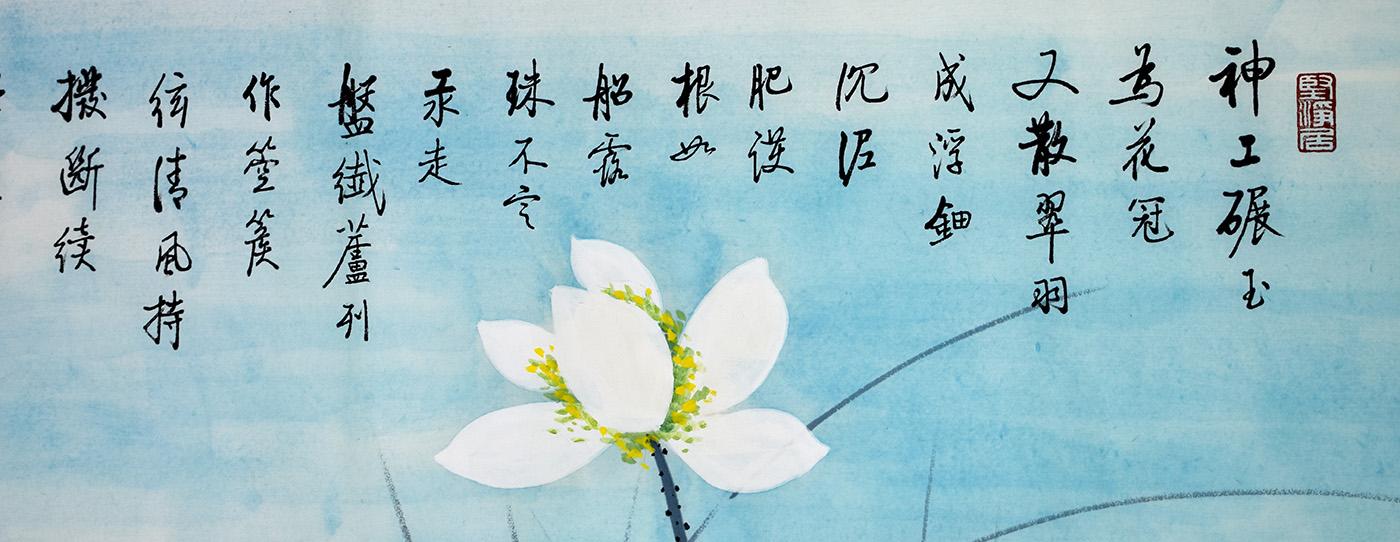 堅淨居
神工碾玉
為花冠
又散翠羽
成浮鈿
沉泥
肥護
根如
船露
珠不定
汞走
盤纖蘆列
作箜篌
弦清風持
撥斷續